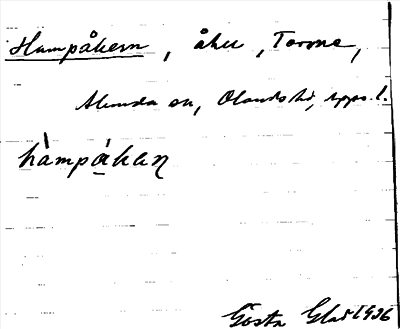 Hampåkern, åker, Torma,
Alunda sn, Olands hd, Upps. l.
hàmpákaɳ
Gösta Glas 1936